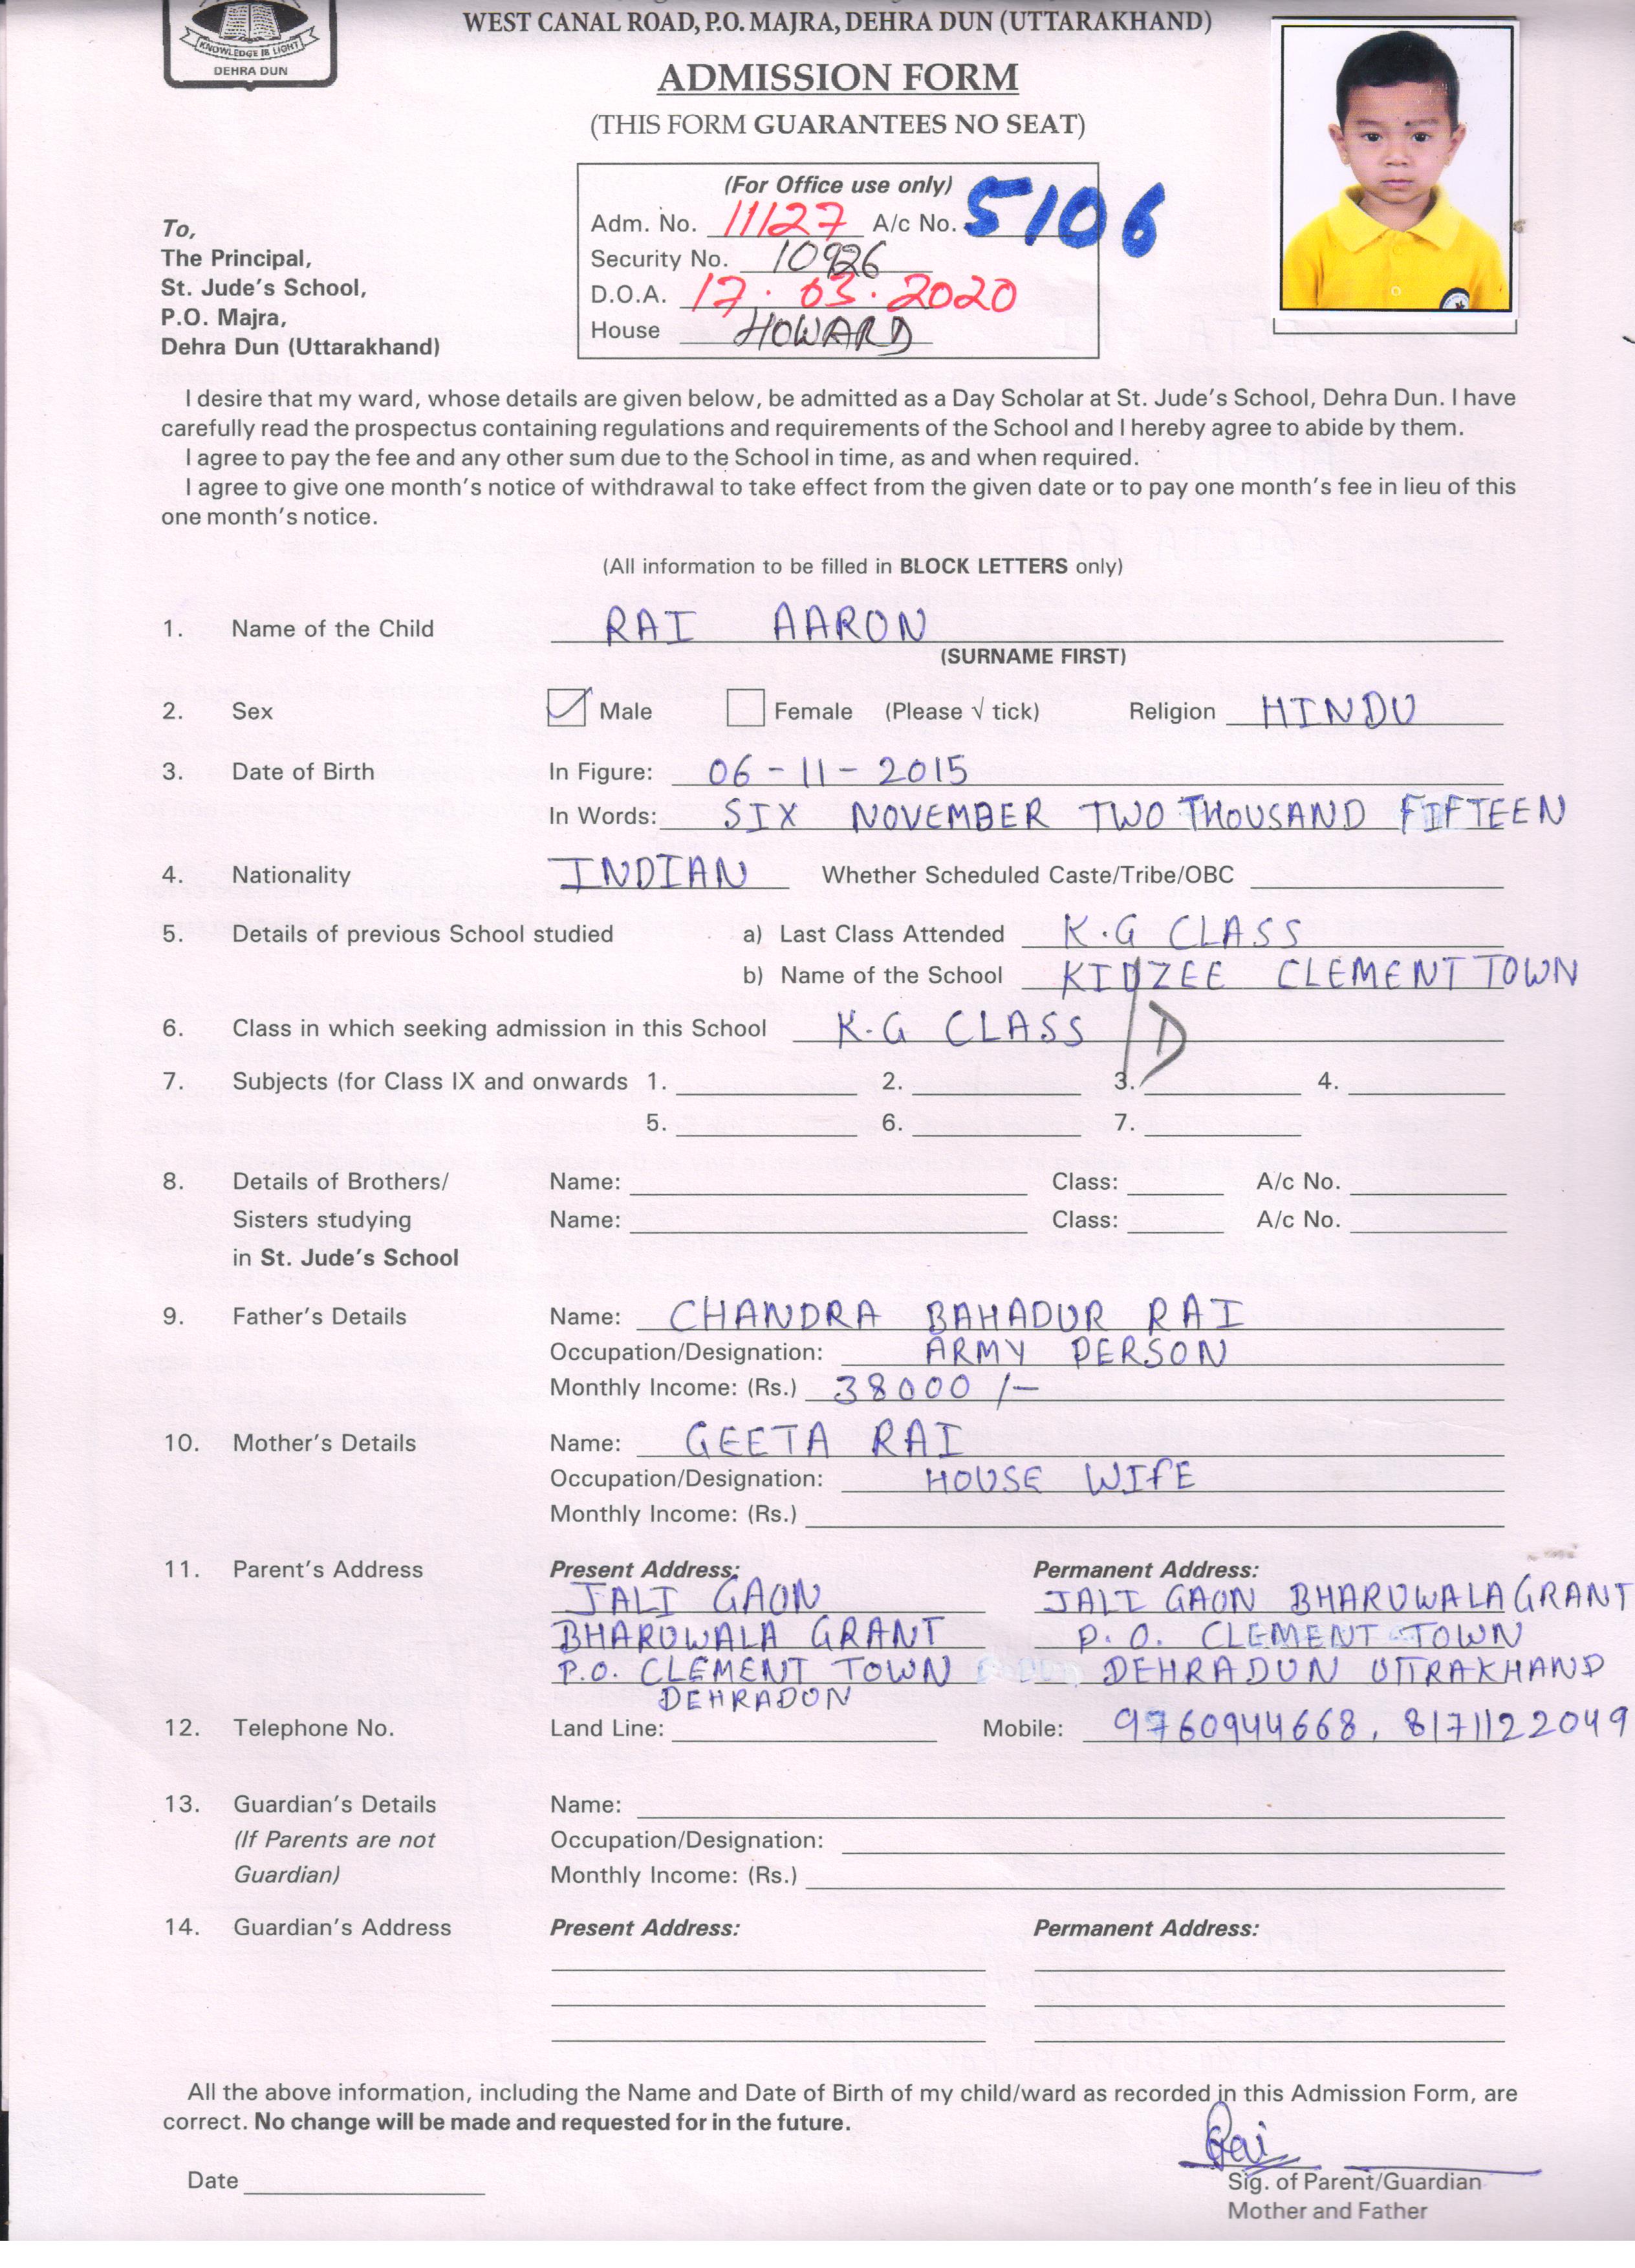 KNOWLEDGE IS LIGHT
DEHRA DUN
WEST CANAL ROAD, P.O. MAJRA, DEHRA DUN (UTTARAKHAND)
ADMISSION FORM
(THIS FORM GUARANTEES NO SEAT)
(For Office use only)
Adm. No. 11127 A/c No. 5106
Security No.
D.O.A. 17.03.2020
House HOWARD
To,
The Principal,
St. Jude's School,
P.O. Majra,
Dehra Dun (Uttarakhand)
I desire that my ward, whose details are given below, be admitted as a Day Scholar at St. Jude's School, Dehra Dun. I have
carefully read the prospectus containing regulations and requirements of the School and I hereby agree to abide by them.
I agree to pay the fee and any other sum due to the School in time, as and when required.
I agree to give one month's notice of withdrawal to take effect from the given date or to pay one month's fee in lieu of this
one month's notice.
(All information to be filled in BLOCK LETTERS only)
1. Name of the Child RAI AARON
(SURNAME FIRST)
2. Sex Male Female (Please √ tick) Religion HINDU
3. Date of Birth In Figure: 06-11-2015
In Words: SIX NOVEMBER TWO THOUSAND FIFTEEN
4. Nationality INDIAN Whether Scheduled Caste/Tribe/OBC
5. Details of previous School studied a) Last Class Attended K.G CLASS
b) Name of the School KIDZEE CLEMENT TOWN
6. Class in which seeking admission in this School K.G CLASS /D
7. Subjects (for Class IX and onwards 1. 2. 3. 4.
5. 6. 7.
8. Details of Brothers/ Name: Class: A/c No.
Sisters studying Name: Class: A/c No.
in St. Jude's School
9. Father's Details Name: CHANDRA BAHADUR RAI
Occupation/Designation: ARMY PERSON
Monthly Income: (Rs.) 38000/-
10. Mother's Details Name: GEETA RAI
Occupation/Designation: HOUSE WIFE
Monthly Income: (Rs.)
11. Parent's Address Present Address: Permanent Address:
JALI GAON JALI GAON BHARUWALA GRANT
BHARUWALA GRANT P.O. CLEMENT TOWN
P.O. CLEMENT TOWN DEHRADUN UTTRAKHAND
DEHRADUN
12. Telephone No. Land Line: Mobile: 9760944668, 8171122049
13. Guardian's Details Name:
(If Parents are not Occupation/Designation:
Guardian) Monthly Income: (Rs.)
14. Guardian's Address Present Address: Permanent Address:
All the above information, including the Name and Date of Birth of my child/ward as recorded in this Admission Form, are
correct. No change will be made and requested for in the future.
Rai
Date Sig. of Parent/Guardian
Mother and Father